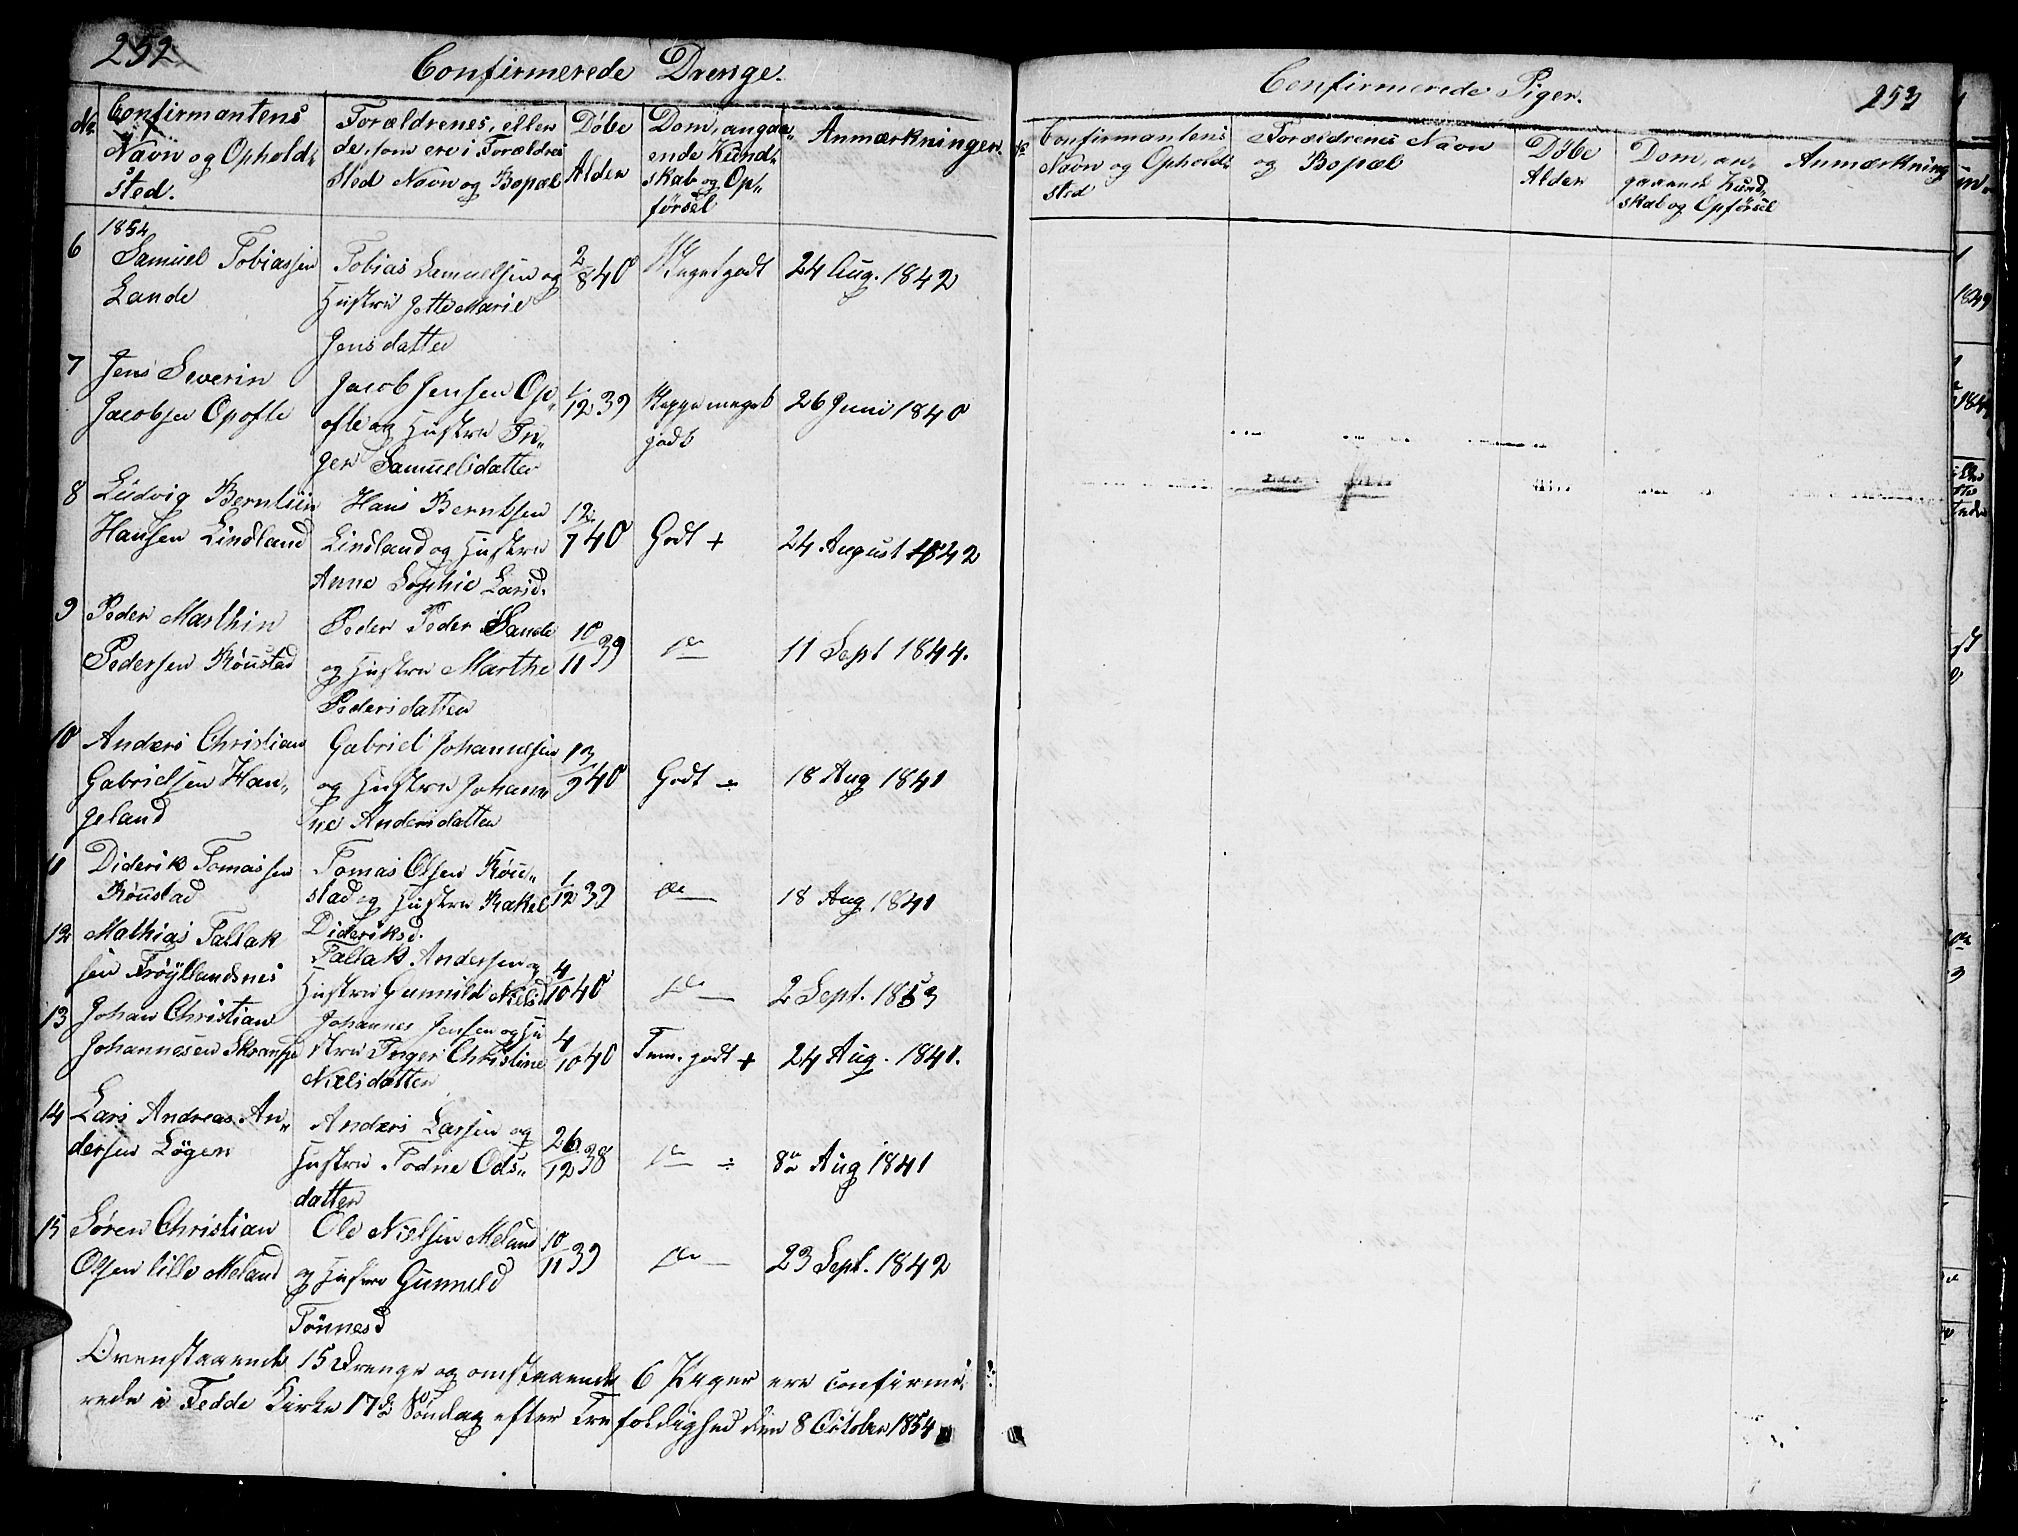 252
Confirmerede Drenge.
No
Confirmantens
Navn og Ophold,
sted.
Forældrenes, eller
de, som ere i Forældres
Sted Navn og Bopæl
Døbe
Alder
Dom, angaa
ende Kund,
skab og Op,,
førsel
Anmærkninger.
1854
6
Samuel Tobiassen
Lande
Tobias Samuelsen og
Hustru Jette Marie
Jensdatter
2/8 40
Meget godt
24 Aug. 1842
7
Jens Severin
Jacobsen Opofte
Jacob Jensen Op,,
ofte og Hustru In,,
ger Samuelsdatter
1/12 39
meget
godt
26 Juni 1840
8
Ludvig Berntiin
Hansen Lindland
Hans Berntsen
Lindland og Hustru
Anne Sophie Larsd.
12/7 40
Godt +
24 August 1842
9
Peder Marthin
Pedersen Röustad
Peder Peder Sande
og Hustru Marthe
Pedersdatter
10/11 39
do
11 Sept 1844.
10
Anders Christian
Gabrielsen Han,,
geland
Gabriel Johannesen
og Hustru Johan,,
ne Andersdatter
13/9 40
Godt ÷
18 Aug 1841
11
Diderik Tomassen
Röustad
Tomas Olsen Röu,,
stad og Hustru Rakel
Dideriksd.
1/12 39
do
18 Aug 1841
12
Mathias Tallak
sen Fröÿlandsnes
Tallak Andersen og
Hustru Gunnild Nielsd
4/10 40
do
2 Sept. 1853
13
Johan Christian
Johannesen Skranpe
Johannes Jensen og Hu
stru Inger Christine
Nielsdatter
4/10 40
Tem. godt +
24 Aug. 1841.
14
Lars Andreas An,,
dersen Lögen
Anders Larsen og
Hustru Todne Ods,,
datter
26/12 38
do ÷
8de Aug 1841
15
Søren Christian
Olsen lille Meland
Ole Nielsen Meland
og Hustru Gunnild
Tönnesd
10/11 39
do
23 Sept. 1842
Ovenstaaende 15 Drenge og omstaaende 6 Piger ere confirme,
rede i Fedde Kirke 17de Söndag efter Trefoldighed den 8 October 1854
Confirmerede Piger.
253
No
Confirmantens
Navn og Ophold,
sted
Forældrenes Navn
og Bopæl
Døbe
Alder
Dom, an,
gaaende Kund,
skab og Opførsel
Anmærkning